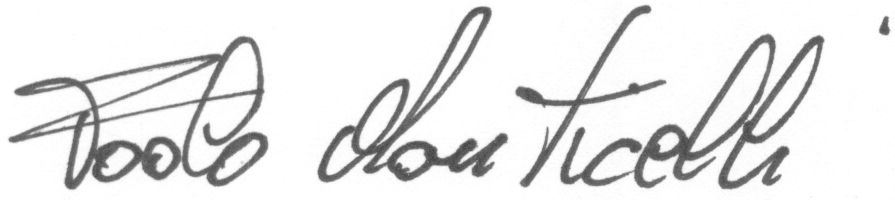 Paolo Monticelli